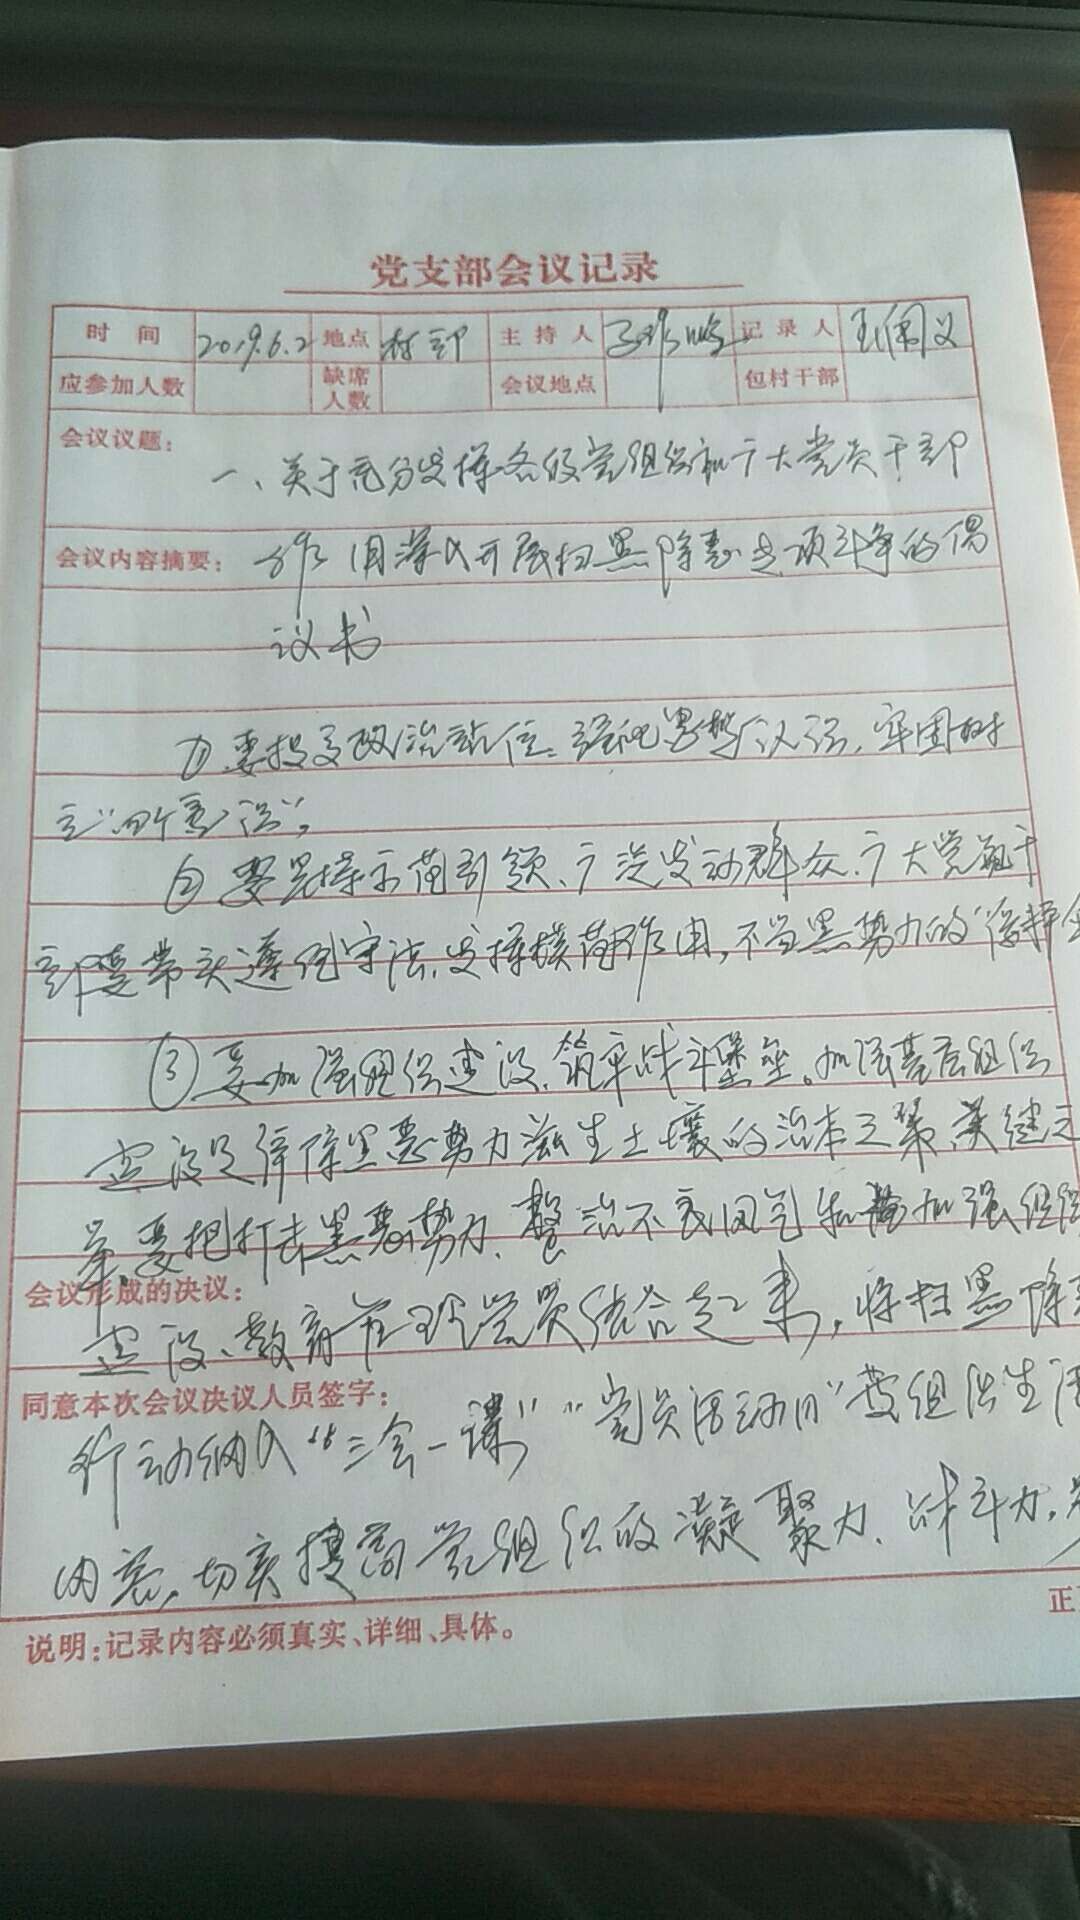 党支部会议记录
时间 2019.6.2 地点 村部 主持人 记录人 王 义
应参加人数 缺席人数 会议地点 包村干部
会议议题:
一、关于充分发挥各级党组织和广大党员干部
会议内容摘要: 作用深入开展扫黑除恶专项斗争的倡
议书
①要提高政治站位、强化思想认识,牢固树
立“四个意识”,
②要坚持示范引领、广泛发动群众、广大党员干
部要带头遵纪守法,发挥模范作用,不当黑势力的“保护伞
③要加强组织建设,筑牢战斗堡垒。加强基层组织
建设是铲除黑恶势力滋生土壤的治本之策、关键之
举,要把打击黑恶势力、整治不良风气和加强组织
会议形成的决议:
建设、教育管理党员结合起来,将扫黑除恶
同意本次会议决议人员签字:
行动纳入“三会一课”“党员活动日”等组织生活
内容,切实提高党组织的凝聚力、战斗力,
说明:记录内容必须真实、详细、具体。
正